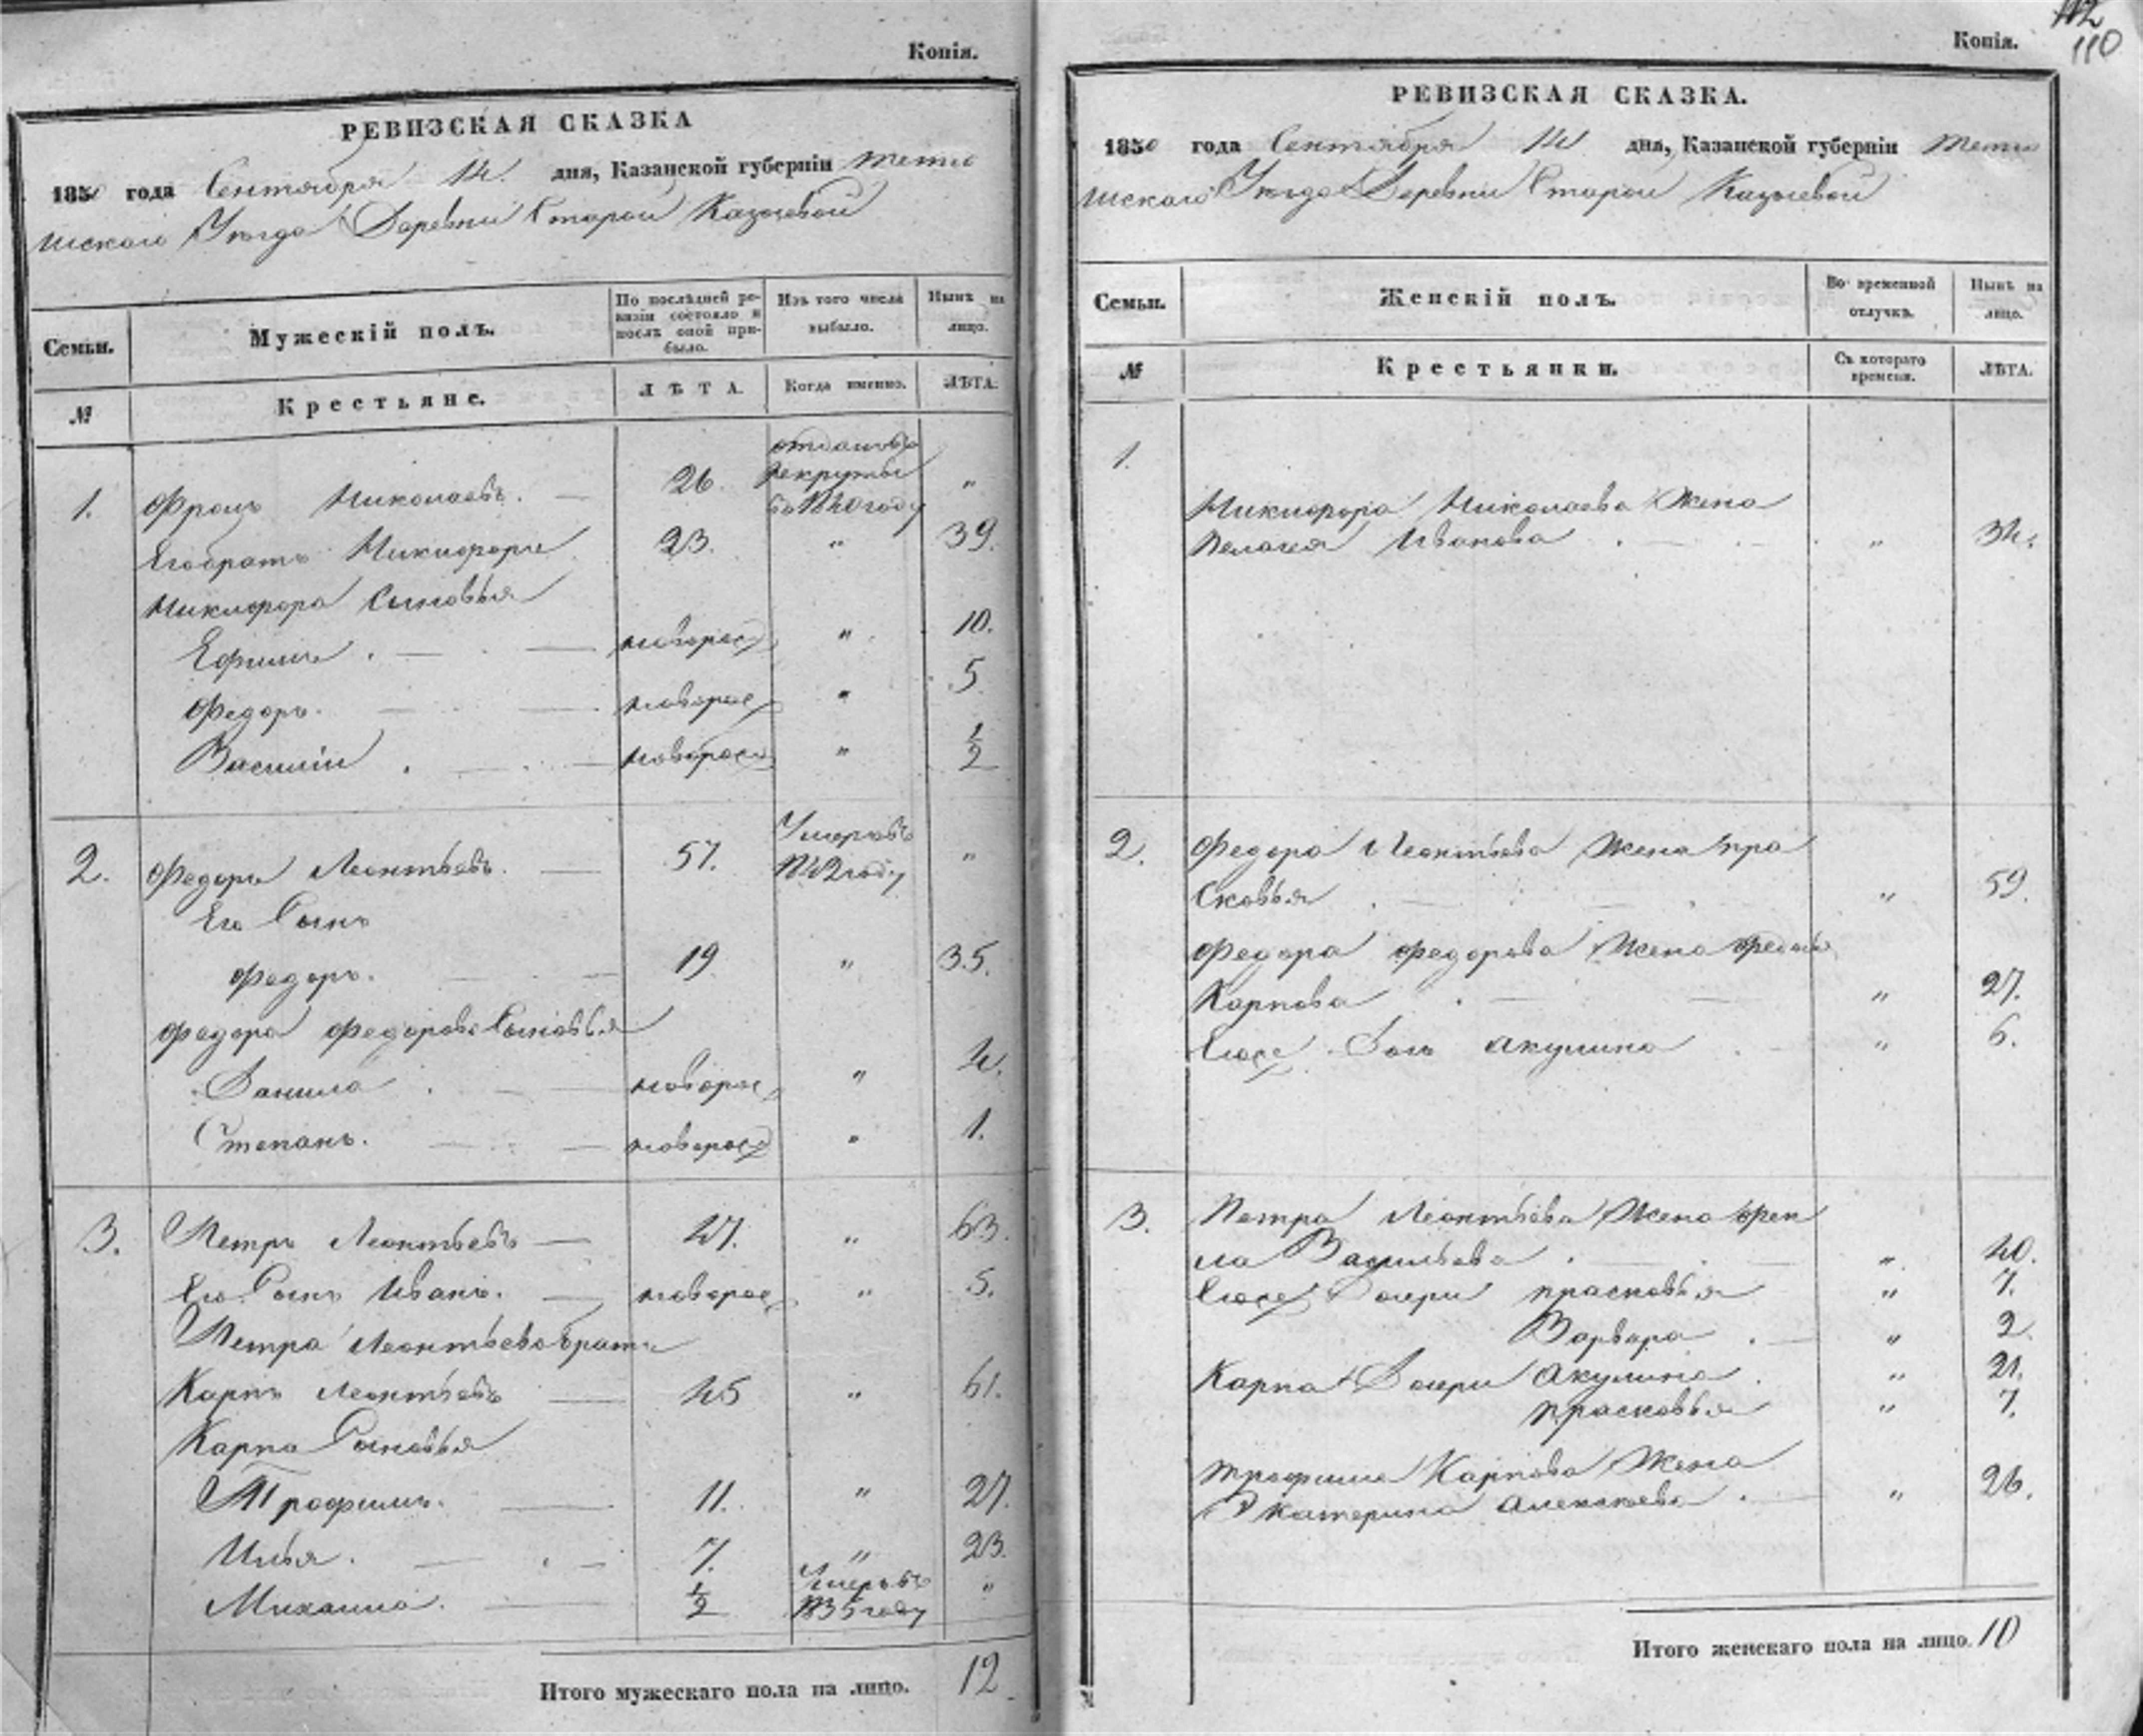 Копія.
РЕВИЗСКАЯ СКАЗКА
1850 года Сентября 14. дня, Казанской губерніи Тетю
шскаго Уѣзда Деревни Старой
Семьи.
Мужескій полъ.
По послѣдней ре-
визіи состояло и
послѣ оной при-
было.
Изъ того числа
выбыло.
Нынѣ на
лицо.
№
Крестьяне.
ЛѢТА.
Когда именно.
ЛѢТА.
отданъ въ
рекруты
1. Фролъ Николаевъ. — 26. въ 1840 году "
Его братъ Никифоръ 23. " 39.
Никифора Сыновья
Ефимъ . — новорож " 10.
Федоръ. — новорож " 5
Василій . — новорож " 1/2
Умеръ въ
2. Федоръ Леонтьевъ. — 57. 1842 году "
Его Сынъ
Федоръ. — 19 " 35.
Федора Федорова Сыновья
Данила . новорож " 4.
Степанъ. — новорож " 1.
3. Петръ Леонтьевъ — 47. " 63.
Его Сынъ Иванъ. — новорож " 5.
Петра Леонтьева братъ
Карпъ Леонтьевъ — 45 " 61.
Карпа Сыновья
Трофимъ. — 11. " 27.
Илья. — 7. " 23.
Умеръ въ
Михаила. — 1/2 1835 году "
Итого мужескаго пола на лицо. 12
112
110
Копія.
РЕВИЗСКАЯ СКАЗКА.
1850 года Сентября 14 дня, Казанской губерніи Тетю
шскаго Уѣзда Деревни Старой
Семьи.
Женскій полъ.
Во временной
отлучкѣ.
Нынѣ на
лицо.
№
Крестьянки.
Съ котораго
времени.
ЛѢТА.
1.
Никифора Николаева Жена
Пелагея Иванова . — " 34.
2. Федора Леонтьева Жена Пра
сковья . — " 59.
Федора Федорова Жена
Карпова . — " 27.
Егоже Дочь Акулина . — " 6.
3. Петра Леонтьева Жена
Васильева . — " 40.
Егоже Дочери Прасковья " 7.
Варвара . — " 2.
Карпа Дочери Акулина . " 21.
Прасковья " 7.
Трофима Карпова Жена
Екатерина Алексѣева . — " 26.
Итого женскаго пола на лицо. 10